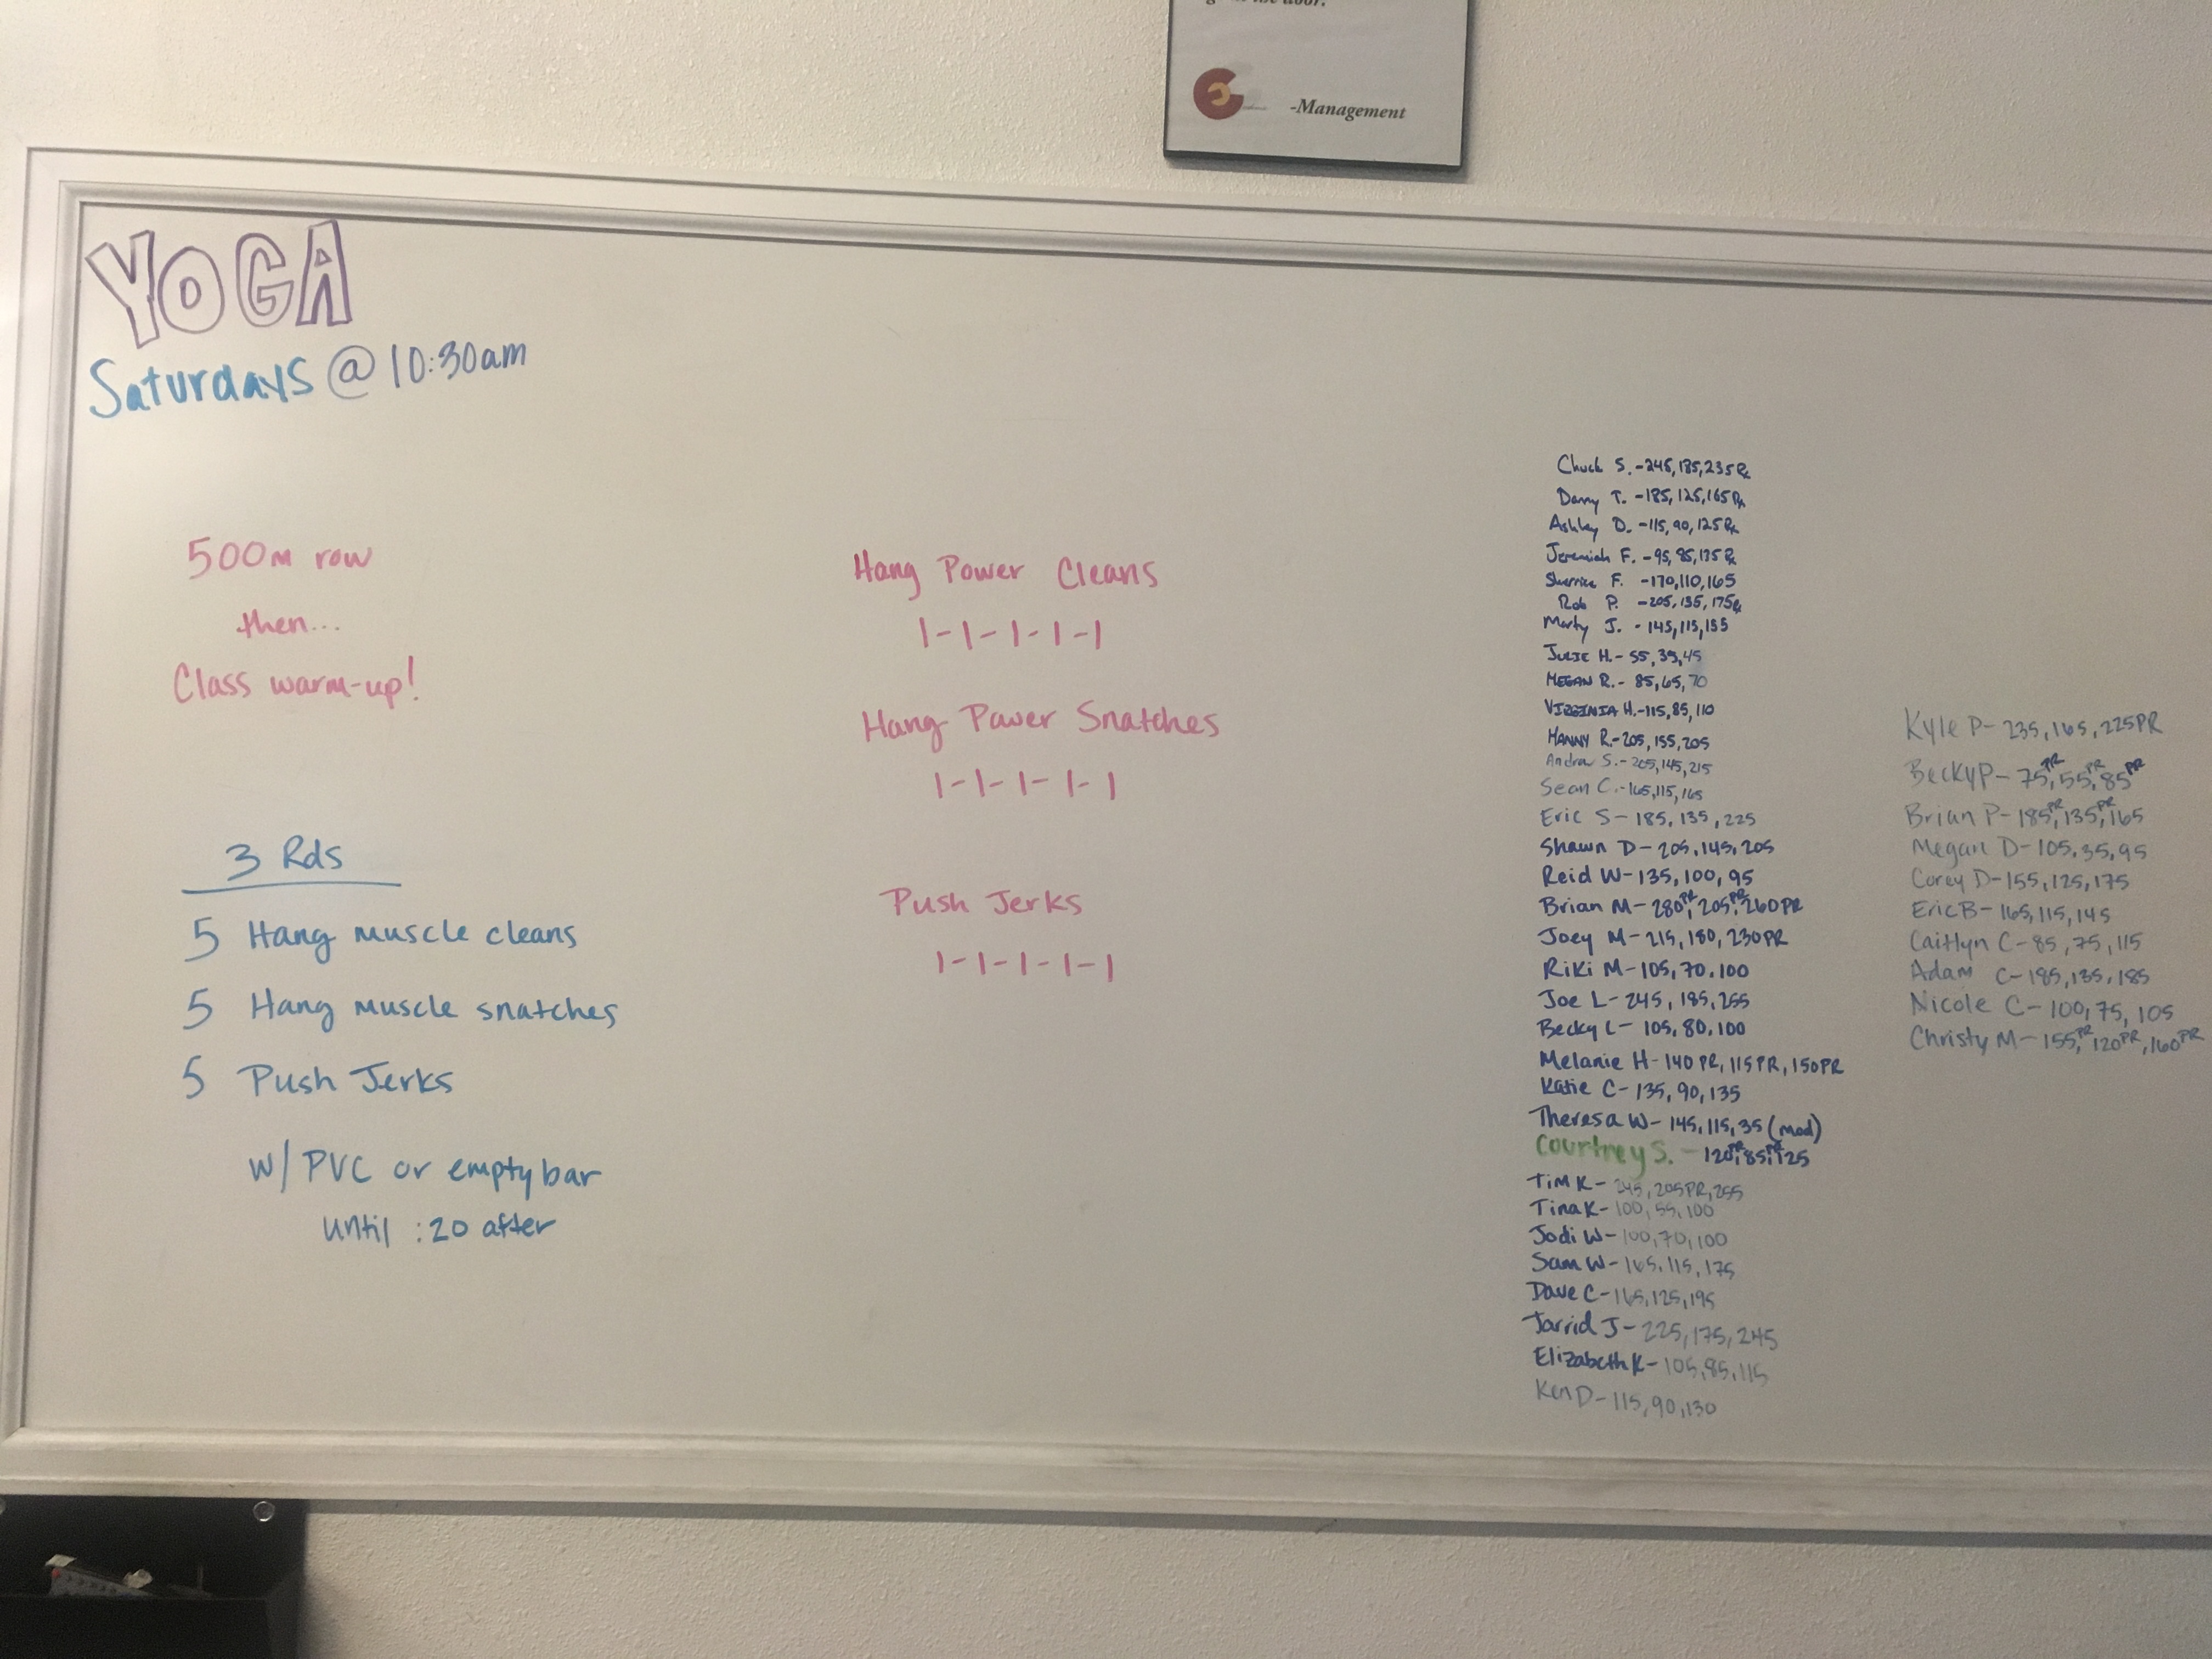 -Management
YOGA
Saturdays @ 10:30am
500m row
then...
Class warm-up!
3 Rds
5 Hang muscle cleans
5 Hang muscle snatches
5 Push Jerks
w/ PVC or empty bar
until :20 after
Hang Power Cleans
1-1-1-1-1
Hang Power Snatches
1-1-1-1-1
Push Jerks
1-1-1-1-1
Chuck S. -245, 185, 235 Rx
Danny T. -185, 125, 165 Rx
Ashley D. -115, 90, 125 Rx
Jeremiah F. -95, 85, 135 Rx
Sherrice F. -170, 110, 165
Rob P. -205, 135, 175 Rx
Marty J. - 145, 115, 155
JULIE H. - 55, 35, 45
MEGAN R. - 85, 65, 70
VIRGINIA H. -115, 85, 110
MANNY R. -205, 155, 205
Andrew S. - 205, 145, 215
Sean C. -165, 115, 165
Eric S - 185, 135, 225
Shawn D - 205, 145, 205
Reid W - 135, 100, 95
Brian M - 280 PR, 205 PR, 260 PR
Joey M - 215, 180, 230 PR
Riki M - 105, 70, 100
Joe L - 245, 185, 255
Becky L - 105, 80, 100
Melanie H - 140 PR, 115 PR, 150 PR
Katie C - 135, 90, 135
Theresa W - 145, 115, 35 (mod)
Courtney S. - 120 PR, 85 PR, 125
Tim K - 245, 205 PR, 255
Tina K - 100, 55, 100
Jodi W - 100, 70, 100
Sam W - 165, 115, 175
Dave C - 165, 125, 195
Jarrid J - 225, 175, 245
Elizabeth K - 105, 85, 115
Ken D - 115, 90, 130
Kyle P - 235, 165, 225 PR
Becky P - 75 PR, 55 PR, 85 PR
Brian P - 185 PR, 135 PR, 165
Megan D - 105, 35, 95
Corey D - 155, 125, 175
Eric B - 165, 115, 145
Caitlyn C - 85, 75, 115
Adam C - 185, 135, 185
Nicole C - 100, 75, 105
Christy M - 155 PR, 120 PR, 160 PR